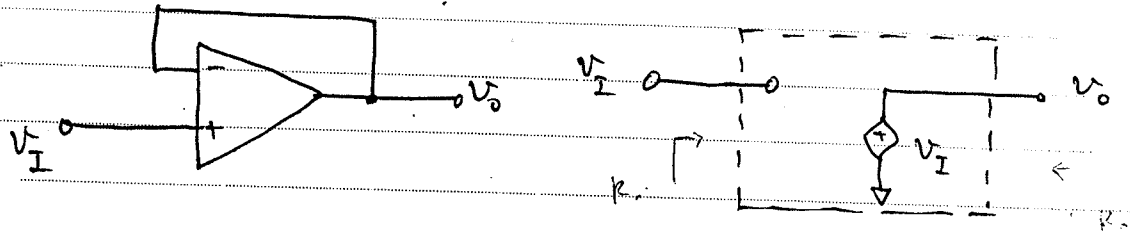 −
V_I
+
V_o
V_I
+
V_I
V_o
R.
R.